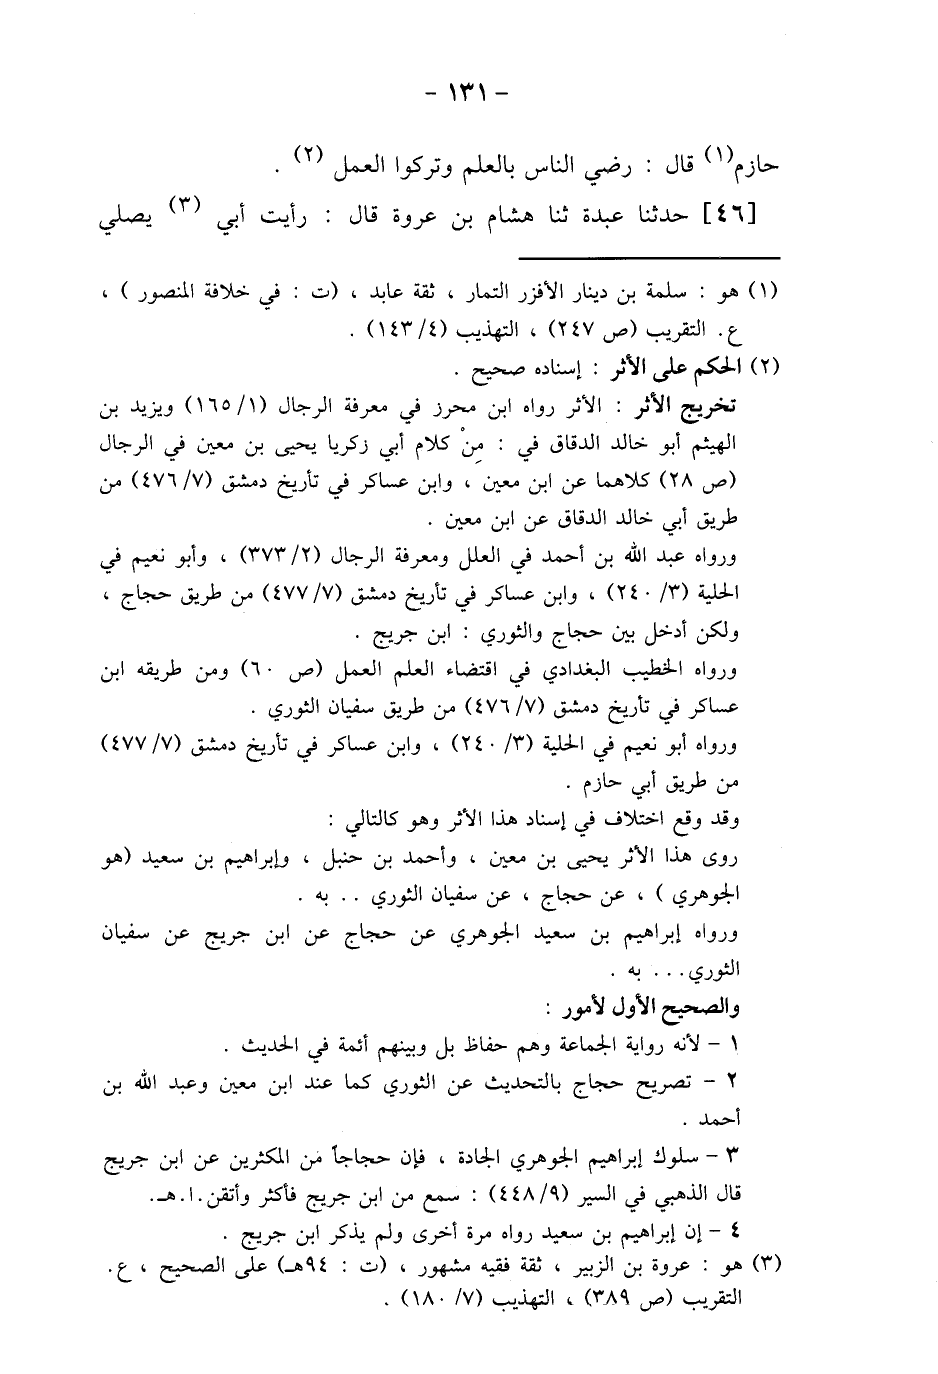 - ١٣١ -
حازم(١) قال : رضي الناس بالعلم وتركوا العمل (٢) .
[٤٦] حدثنا عبدة ثنا هشام بن عروة قال : رأيت أبي (٣) يصلي
(١) هو : سلمة بن دينار الأفزر التمار ، ثقة عابد ، (ت : في خلافة المنصور ) ،
ع. التقريب (ص ٢٤٧) ، التهذيب (٤/ ١٤٣) .
(٢) الحكم على الأثر : إسناده صحيح .
تخريج الأثر : الأثر رواه ابن محرز في معرفة الرجال (١/ ١٦٥) ويزيد بن
الهيثم أبو خالد الدقاق في : مِنْ كلام أبي زكريا يحيى بن معين في الرجال
(ص ٢٨) كلاهما عن ابن معين ، وابن عساكر في تأريخ دمشق (٧/ ٤٧٦) من
طريق أبي خالد الدقاق عن ابن معين .
ورواه عبد الله بن أحمد في العلل ومعرفة الرجال (٢/ ٣٧٣) ، وأبو نعيم في
الحلية (٣/ ٢٤٠) ، وابن عساكر في تأريخ دمشق (٧/ ٤٧٧) من طريق حجاج ،
ولكن أدخل بين حجاج والثوري : ابن جريج .
ورواه الخطيب البغدادي في اقتضاء العلم العمل (ص ٦٠) ومن طريقه ابن
عساكر في تأريخ دمشق (٧/ ٤٧٦) من طريق سفيان الثوري .
ورواه أبو نعيم في الحلية (٣/ ٢٤٠) ، وابن عساكر في تأريخ دمشق (٧/ ٤٧٧)
من طريق أبي حازم .
وقد وقع اختلاف في إسناد هذا الأثر وهو كالتالي :
روى هذا الأثر يحيى بن معين ، وأحمد بن حنبل ، وإبراهيم بن سعيد (هو
الجوهري ) ، عن حجاج ، عن سفيان الثوري .. به .
ورواه إبراهيم بن سعيد الجوهري عن حجاج عن ابن جريج عن سفيان
الثوري... به .
والصحيح الأول لأمور :
١ - لأنه رواية الجماعة وهم حفاظ بل وبينهم أئمة في الحديث .
٢ - تصريح حجاج بالتحديث عن الثوري كما عند ابن معين وعبد الله بن
أحمد .
٣ - سلوك إبراهيم الجوهري الجادة ، فإن حجاجاً من المكثرين عن ابن جريج
قال الذهبي في السير (٩/ ٤٤٨) : سمع من ابن جريج فأكثر وأتقن.ا.هـ.
٤ - إن إبراهيم بن سعيد رواه مرة أخرى ولم يذكر ابن جريج .
(٣) هو : عروة بن الزبير ، ثقة فقيه مشهور ، (ت : ٩٤هـ) على الصحيح ، ع.
التقريب (ص ٣٨٩) ، التهذيب (٧/ ١٨٠) .